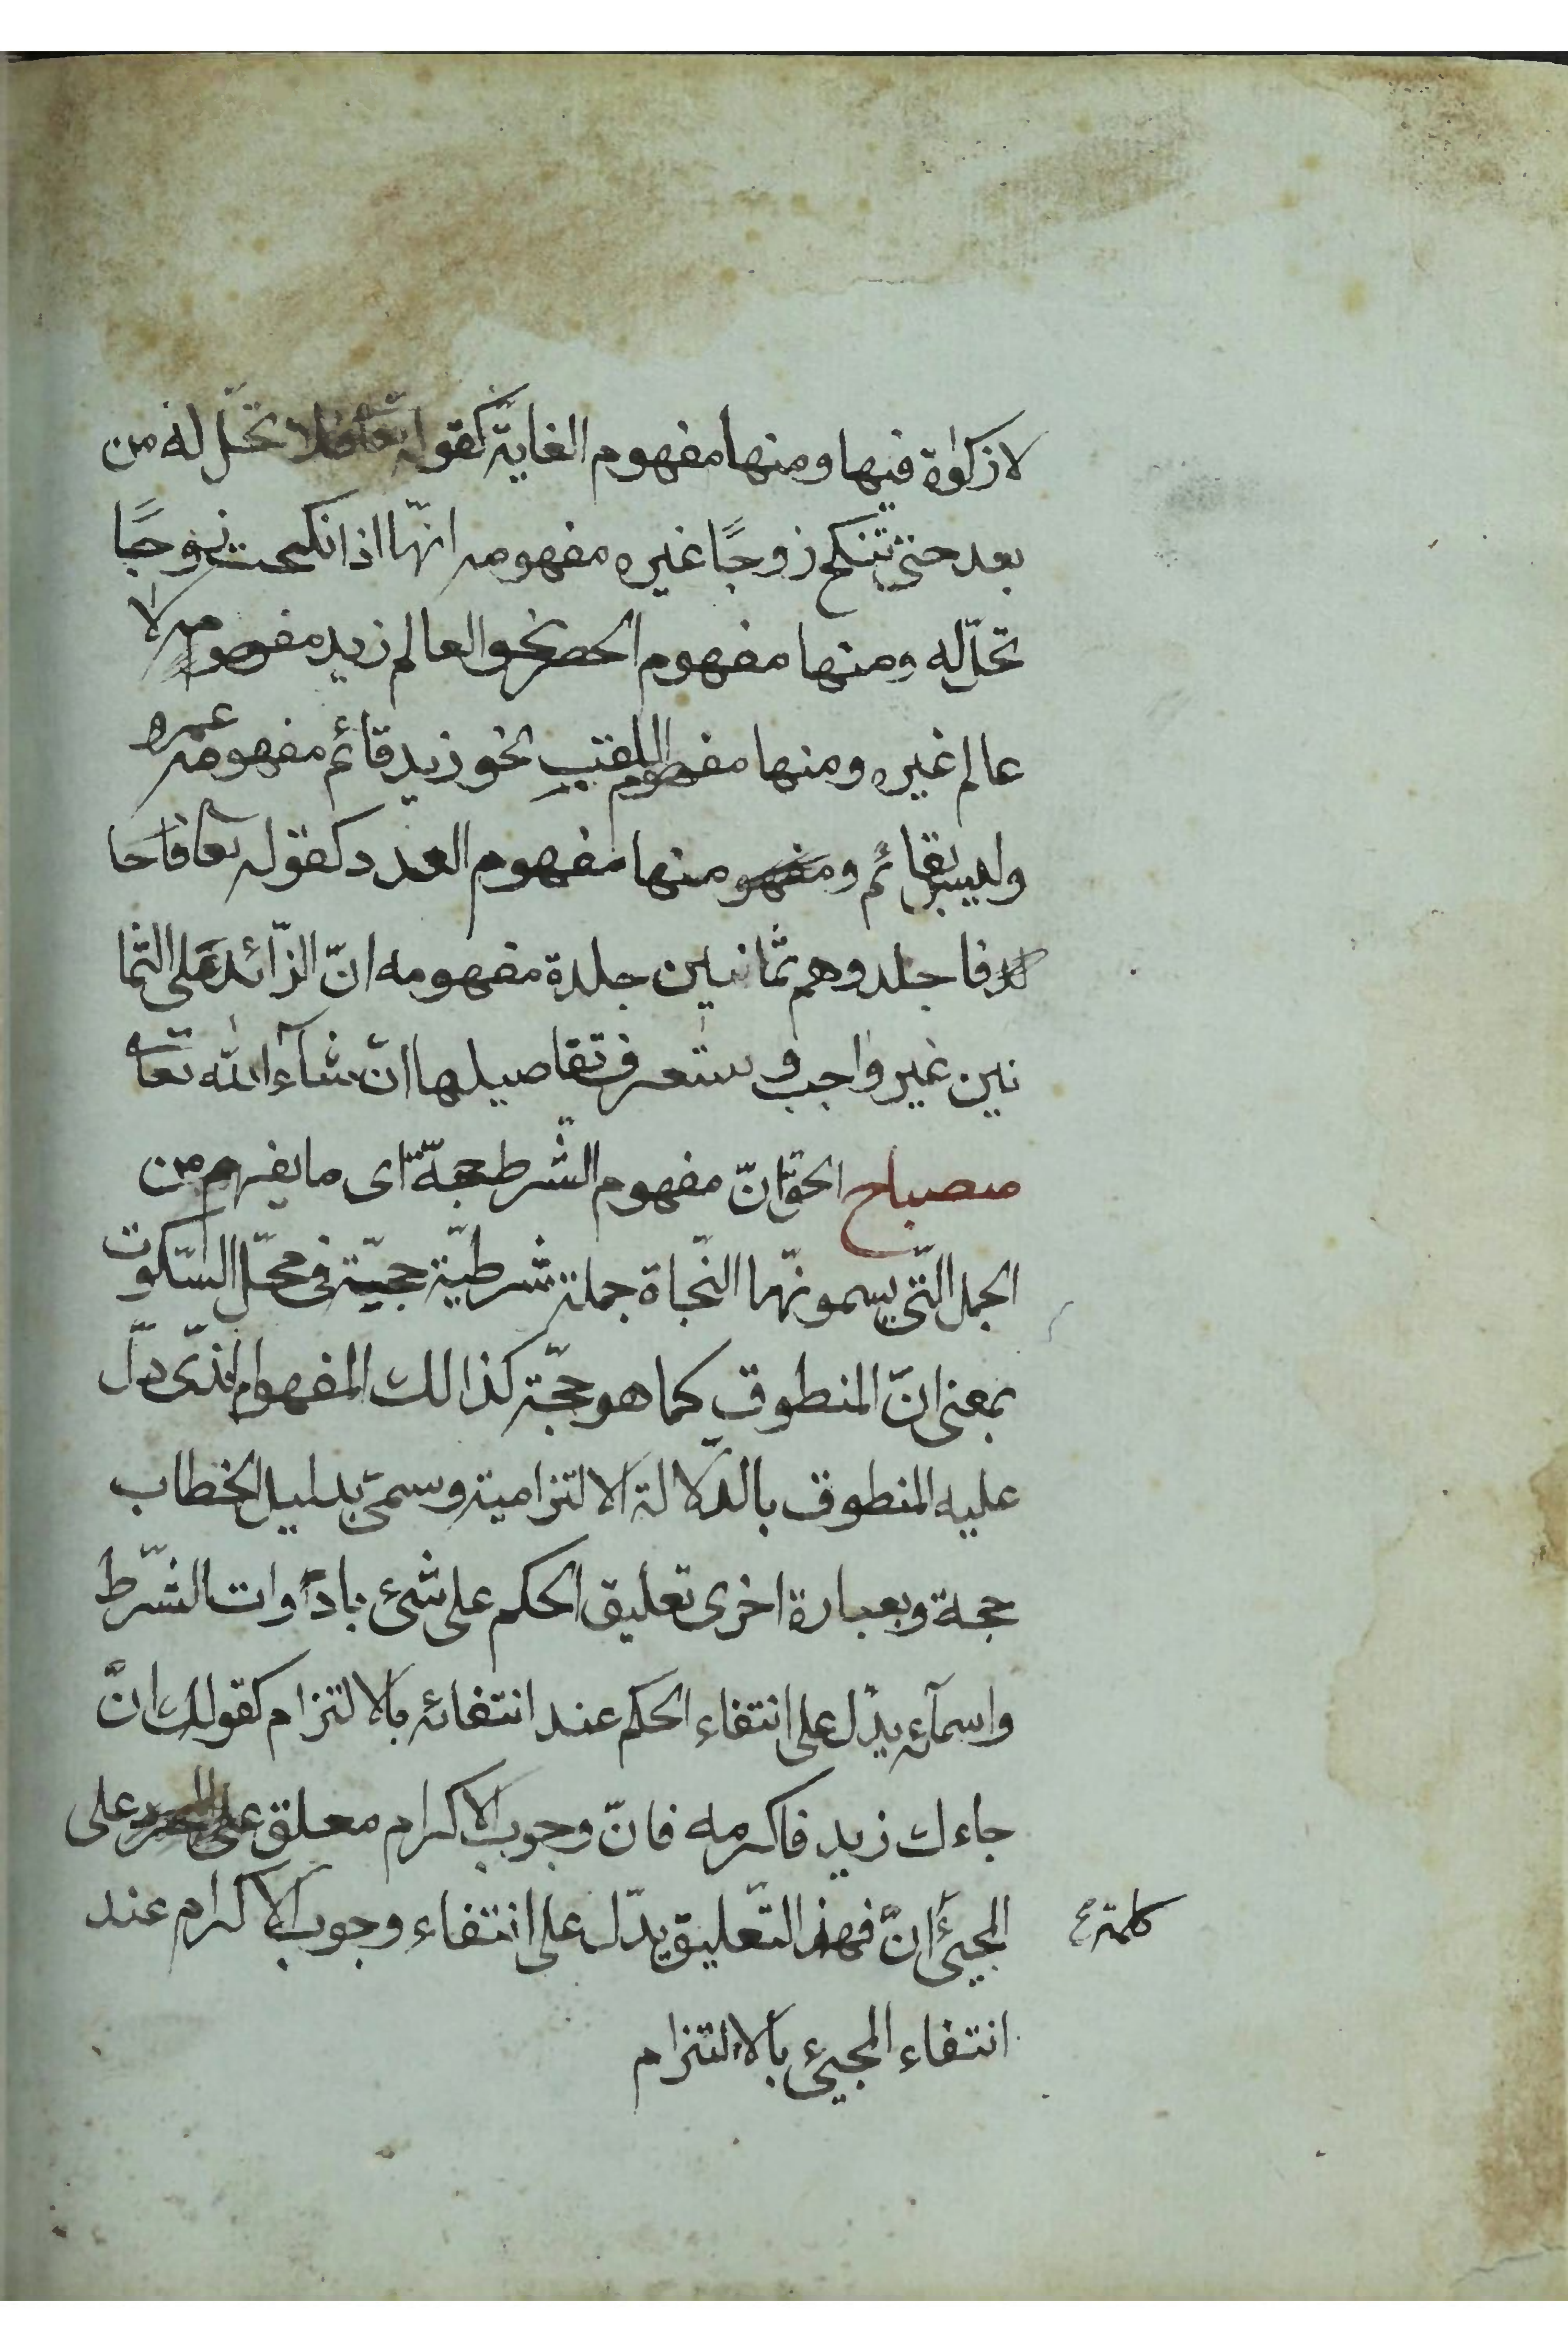 لا زكوة فيها ومنها مفهوم الغاية كقوله تعا فلا تحلّ له من
بعد حتى تنكح زوجًا غيره مفهومه انّها اذا نكحت زوجًا
تحلّ له ومنها مفهوم الحصر نحو العالم زيد مفهومه لا
عالم غيره ومنها مفهوم اللقب نحو زيد قائم مفهومه عمرو
وليس بقائم ومفهو منها مفهوم العدد كقوله تعا فاجا
فاجلدوهم ثمانين جلدة مفهومه انّ الزّائد على الثما
نين غير واجب وستعرف تفاصيلها ان شآء الله تعا
مصباح الحقّ انّ مفهوم الشّرط حجّة اى ما يفهم من
الجمل التّى يسمونّها النّحاة جملة شرطيّة حجيّة فى محلّ السّكوت
بمعنى انّ المنطوق كما هو حجّة كذالك المفهوم الذّى دلّ
عليه المنطوق بالدّلالة الالتزامية وسمىّ بدليل الخطاب
حجة وبعبارة اخرى تعليق الحكم على شئ بادوات الشّرط
واسمآئه يدلّ على انتفاء الحكم عند انتفائه بالالتزام كقولك انّ
جاءك زيد فاكرمه فانّ وجوب الاكرام معلق على على
المجيئ انّ فهذا التّعليق يدلّ على انتفاء وجوب الاكرام عند
كلمة
انتفاء المجيئ بالالتزام